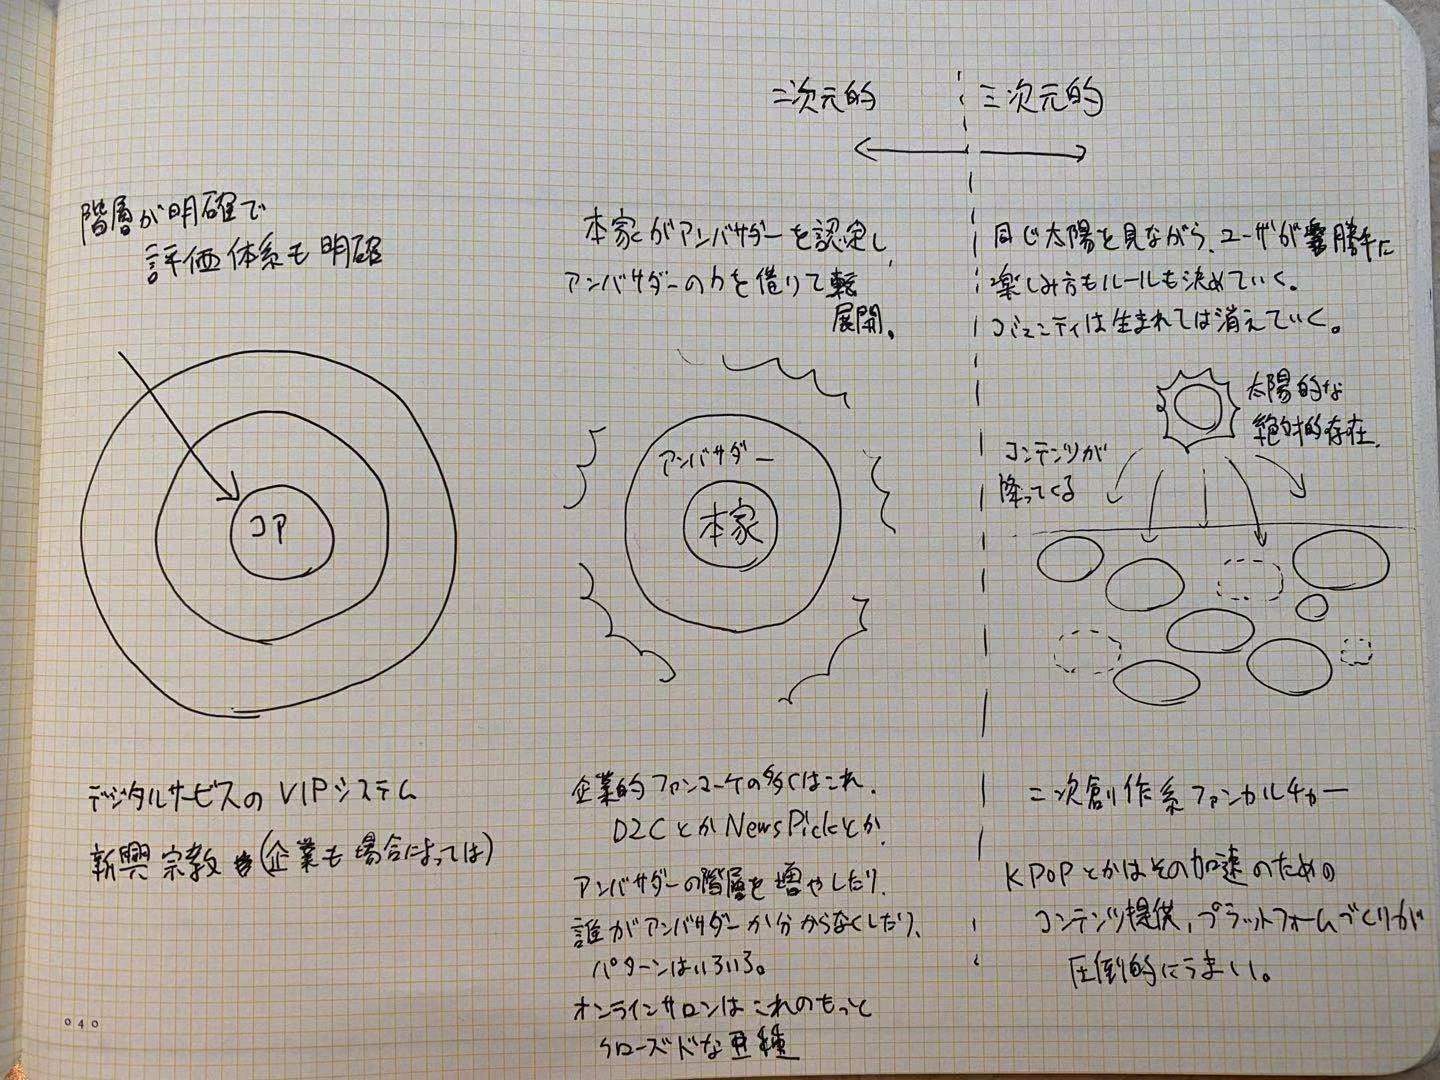 二次元的
三次元的
階層が明確で
評価体系も明確
コア
デジタルサービスのVIPシステム
新興宗教(企業も場合によっては)
本家がアンバサダーを認定し、
アンバサダーの力を借りて
展開。
アンバサダー
本家
企業的ファンマーケの多くはこれ.
D2CとかNewsPickとか.
アンバサダーの階層を増やしたり、
誰がアンバサダーか分からなくしたり、
パターンはいろいろ。
オンラインサロンはこれのもっと
クローズドな亜種
同じ太陽を見ながら、ユーザが勝手に
楽しみ方もルールも決めていく。
コミュニティは生まれては消えていく。
太陽的な
絶対的存在.
コンテンツが
降ってくる
二次創作系ファンカルチャー
KPOPとかはその加速のための
コンテンツ提供、プラットフォームづくりが
圧倒的にうまい。
040